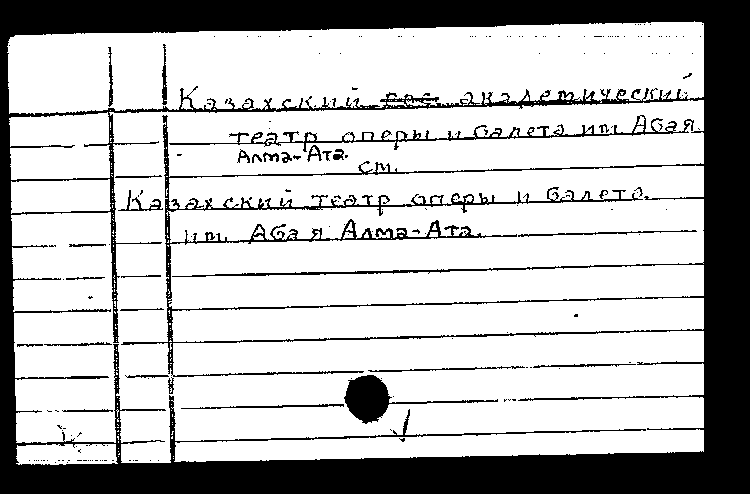 Казахский гос. академический
театр оперы и балета им Абая
Алма-Ата.
см.
Казахский театр оперы и балета.
им. Абая Алма-Ата.